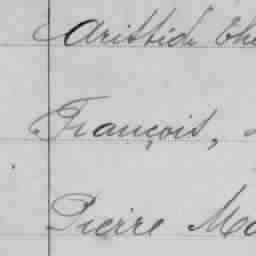 Aristide The
François,
Pierre Ma